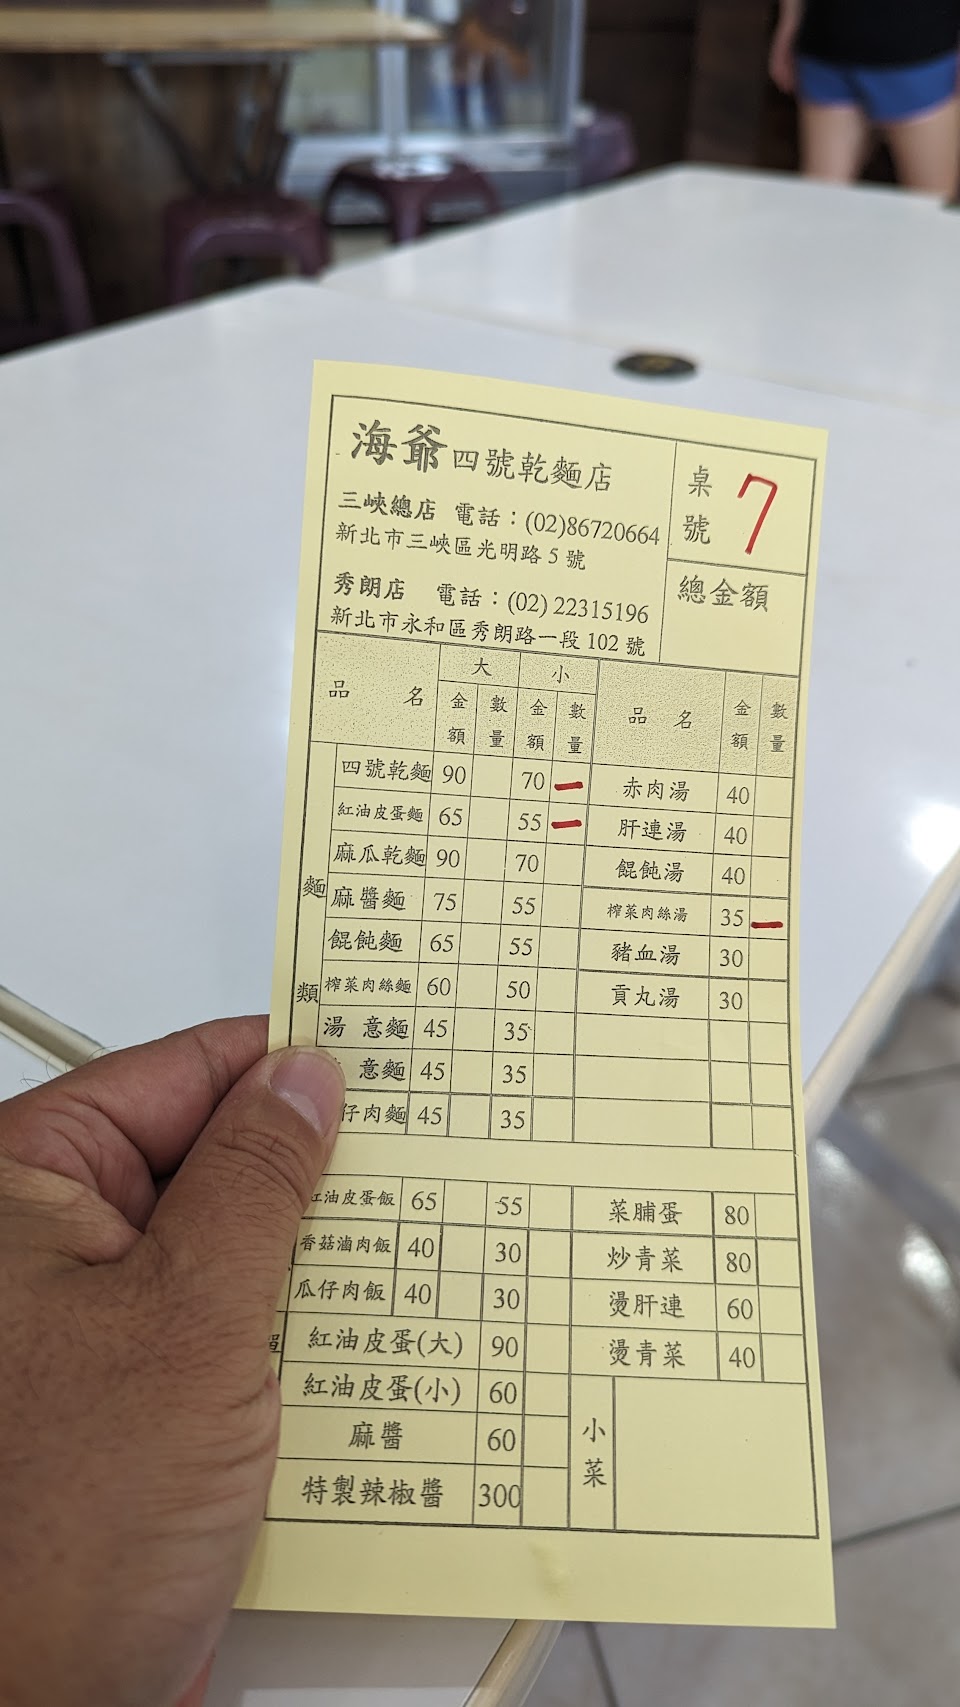 海爺四號乾麵店
三峽總店 電話：(02)86720664
新北市三峽區光明路 5 號
秀朗店 電話：(02) 22315196
新北市永和區秀朗路一段 102 號
桌號 7
總金額
品名 大 小 品名 金額 數量
金額 數量 金額 數量
麵類
四號乾麵 90 70 一 赤肉湯 40
紅油皮蛋麵 65 55 一 肝連湯 40
麻瓜乾麵 90 70 餛飩湯 40
麻醬麵 75 55 榨菜肉絲湯 35 一
餛飩麵 65 55 豬血湯 30
榨菜肉絲麵 60 50 貢丸湯 30
湯 意麵 45 35
意麵 45 35
仔肉麵 45 35
紅油皮蛋飯 65 55 菜脯蛋 80
香菇滷肉飯 40 30 炒青菜 80
瓜仔肉飯 40 30 燙肝連 60
單
紅油皮蛋(大) 90 燙青菜 40
紅油皮蛋(小) 60 小菜
麻醬 60
特製辣椒醬 300